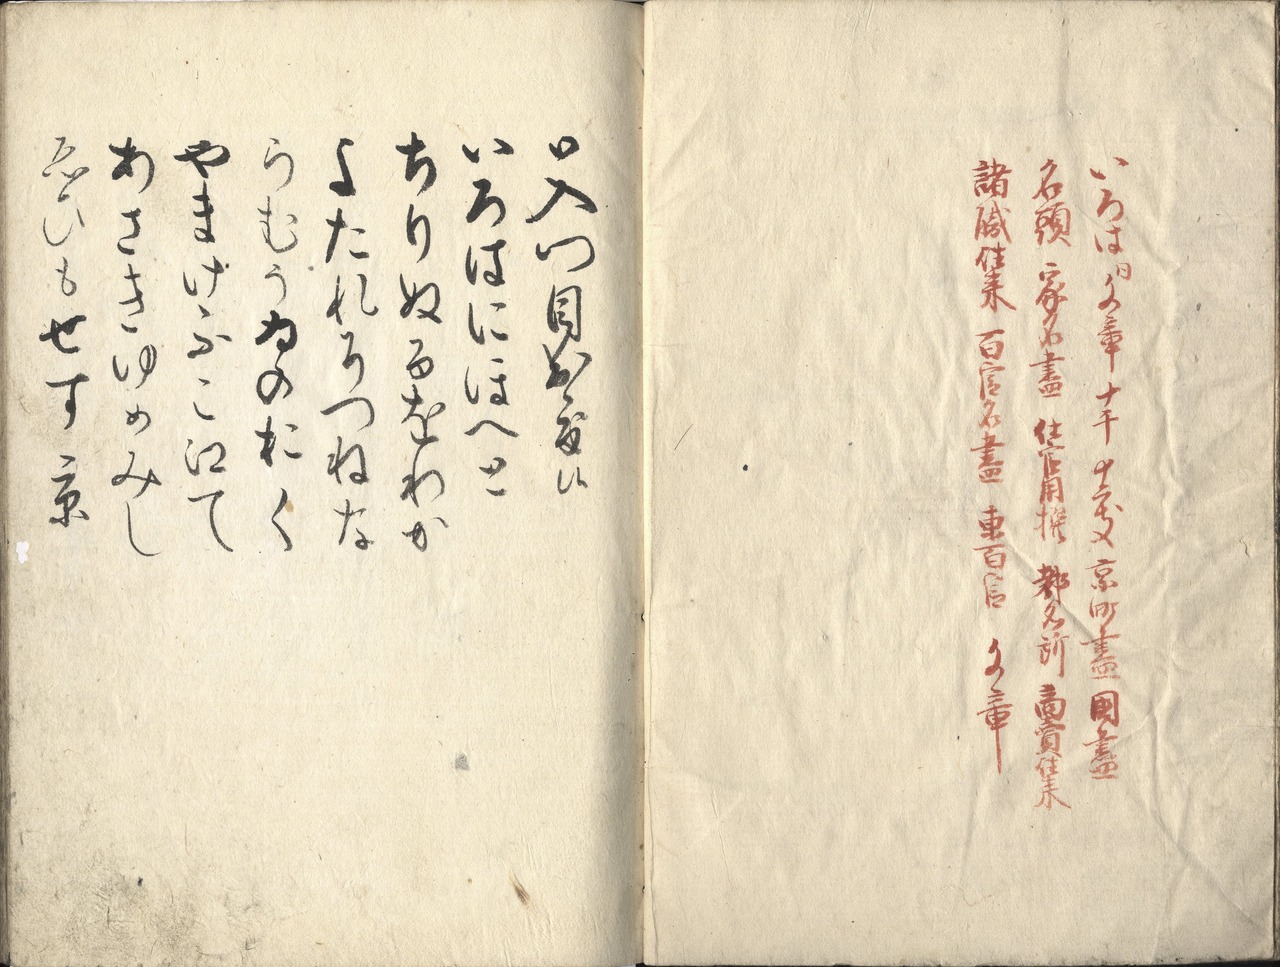 いろは 同文章 十干 十二支 京町盡 國盡
名頭 家名盡 消息用撰 都名所 商賣往来
諸職往来 百官名盡 東百官 文章
入門
いろはにほへと
ちりぬるをわか
よたれそつねな
らむうゐのおく
やまけふこ江て
あさきゆめみし
ゑひもせす京